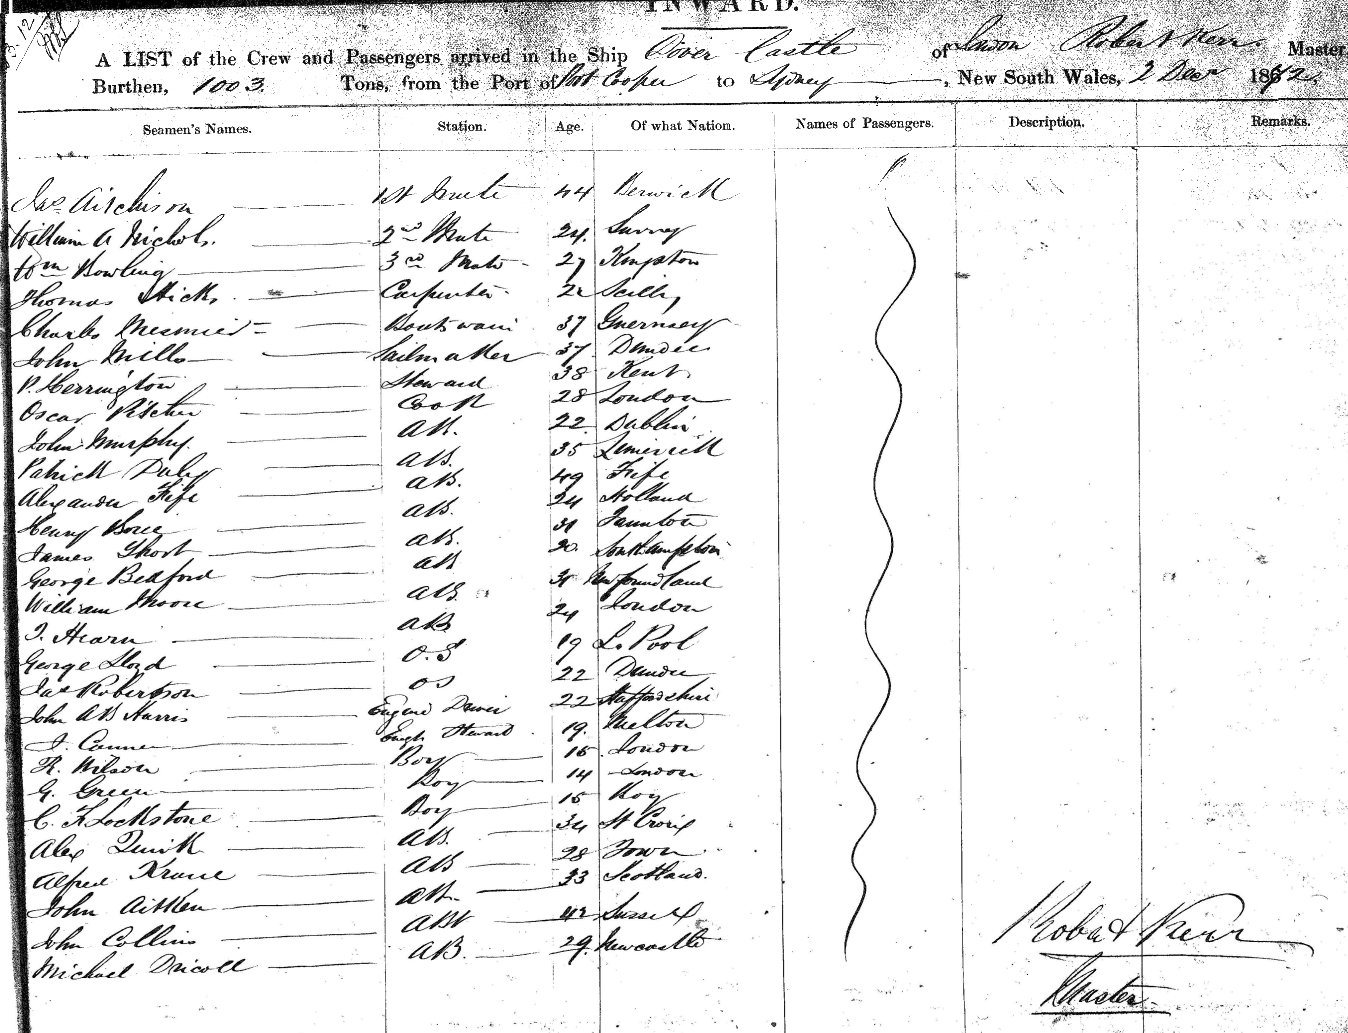 INWARD.
A LIST of the Crew and Passengers arrived in the Ship Dover Castle of London Robert Kerr Master
Burthen, 1003 Tons, from the Port of Port Cooper to Sydney, New South Wales, 2 Decr 1872
Seamen's Names. Station. Age. Of what Nation. Names of Passengers. Description. Remarks.
Jas Aitchison 1st Mate 44 Berwick
William A Nichols. 2nd Mate 24. Surrey
Wm Bowling 3rd Mate 27 Kingston
Thomas Hicks Carpenter 22 Scilly
Charles Boatswain 37 Guernsey
John Mills Sailmaker 37 Dundee
P. Herrington Steward 38 Kent
Oscar Cook 28 London
John Murphy. AB. 22 Dublin
Patrick Daly AB. 35 Limerick
Alexander Fife AB. 49 Fife
Henry AB. 24 Holland
James Short AB. 31 Taunton
George Bedford AB 20 Southampton
William Moore AB 31 Newfoundland
T. Hearn AB 24 London
George Lloyd O.S 19 L. Pool
Jas Robertson OS 22 Dundee
John AB Harris Engine Driver 22 Staffordshire
J. Steward 19. Melton
R. Wilson Boy 15 London
G. Green Boy 14 London
C. F Lockstone Boy 15
Alex Quirk AB. 34 St Croix
Alfred AB 28
John Aitken AB. 33 Scotland.
John Collins AB 42 Sussex
Michael Dricoll AB. 29. Newcastle
Robert Kerr
Master